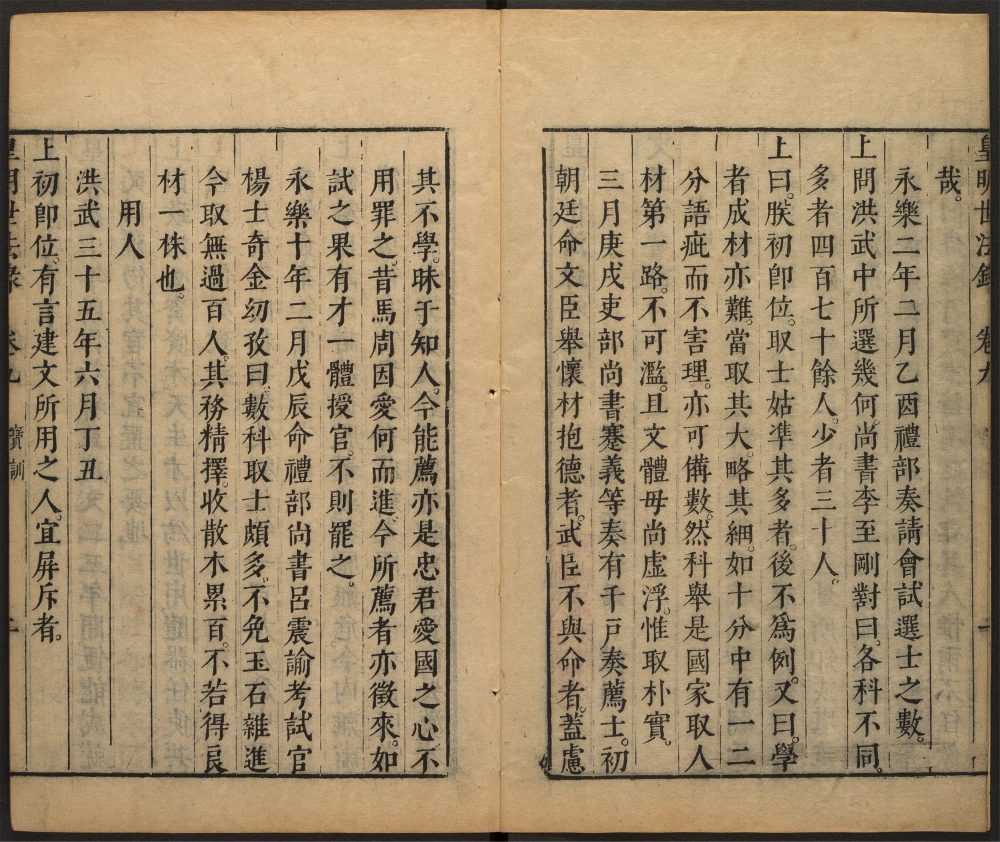 皇明世法錄 卷九 一
哉。
永樂二年二月乙酉禮部奏請會試選士之數。
上問洪武中所選幾何。尚書李至剛對曰。各科不同。
多者四百七十餘人。少者三十人。
上曰。朕初卽位。取士姑準其多者。後不爲例。又曰。學
者成材亦難。當取其大。略其細。如十分中有一二
分語疵而不害理。亦可備數。然科舉是國家取人
材第一路。不可濫。且文體毋尚虛浮。惟取朴實。
三月庚戌吏部尚書蹇義等奏有千戶奏薦士。初
朝廷命文臣舉懷材抱德者。武臣不與命者。蓋慮
其不學。昧于知人。今能薦亦是忠君愛國之心。不
用罪之。昔馬周因愛何而進。今所薦者亦徵來。如
試之果有才一體授官。不則罷之。
永樂十年二月戊辰命禮部尚書呂震諭考試官
楊士奇金幼孜曰。數科取士頗多。不免玉石雜進
今取無過百人。其務精擇。收散木累百。不若得良
材一株也。
用人
洪武三十五年六月丁丑
上初卽位。有言建文所用之人。宜屏斥者。
皇明世法錄 卷九 寶訓